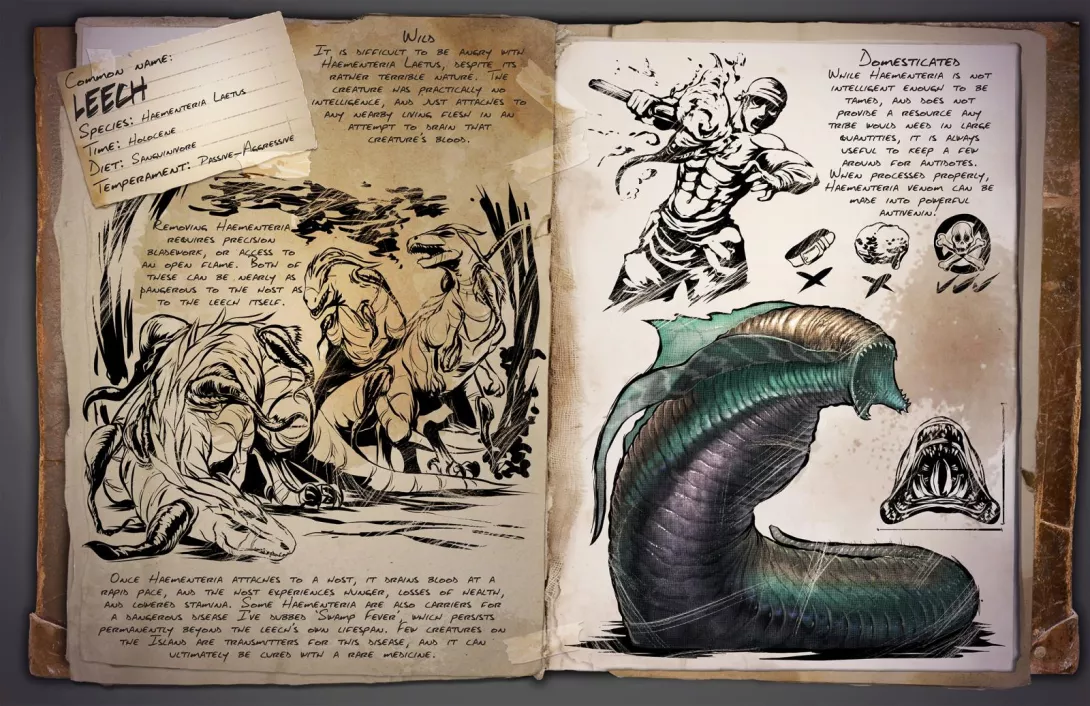 Common name:
LEECH
Species: Haementeria Laetus
Time: Holocene
Diet: Sanguinivore
Temperament: Passive-Aggressive
Wild
It is difficult to be angry with
Haementeria Laetus, despite its
rather terrible nature. The
creature was practically no
intelligence, and just attaches to
any nearby living flesh in an
attempt to drain that
creature's blood.
Removing Haementeria
requires precision
bladework, or access to
an open flame. Both of
these can be nearly as
dangerous to the host as
to the leech itself.
Once Haementeria attaches to a host, it drains blood at a
rapid pace, and the host experiences hunger, losses of health,
and lowered stamina. Some Haementeria are also carriers for
a dangerous disease I've dubbed 'Swamp Fever', which persists
permanently beyond the leech's own lifespan. Few creatures on
the Island are transmitters for this disease, and it can
ultimately be cured with a rare medicine.
Domesticated
While Haementeria is not
intelligent enough to be
tamed, and does not
provide a resource any
tribe would need in large
quantities, it is always
useful to keep a few
around for antidotes.
When processed properly,
Haementeria venom can be
made into powerful
antivenin.